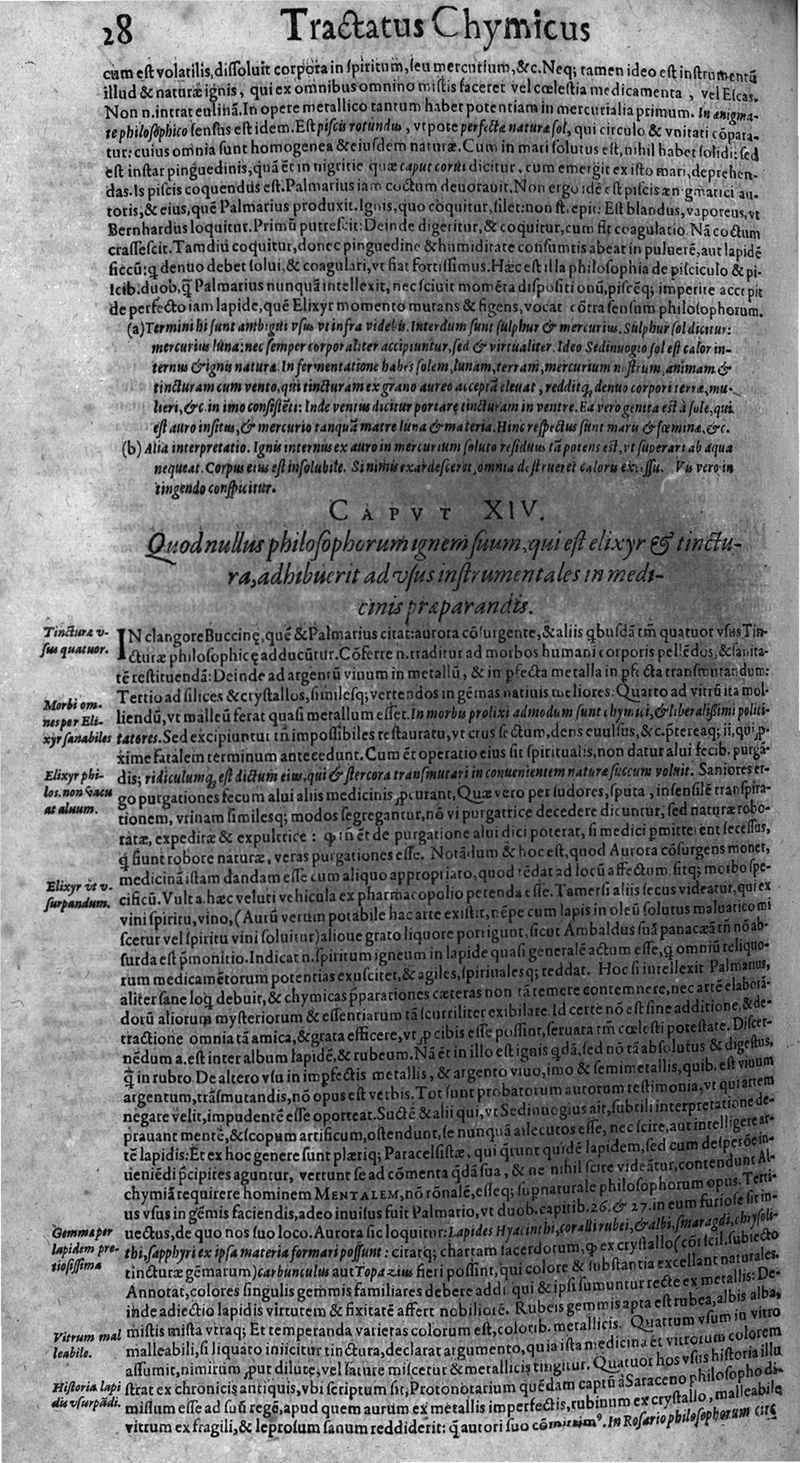 28 Tractatus Chymicus
cum est volatilis, dissoluit corpora in spiritum, seu mercurium, &c. Neq; tamen ideo est instrumentũ
illud & naturæ ignis, qui ex omnibus omnino mistis faceret vel cœlestia medicamenta, vel Escas.
Non n. intrat culinã. In opere metallico tantum habet potentiam in mercurialia primum. In ænigma-
te philosophico sensus est idem. Est piscis rotundus, vtpote perfecta natura sol, qui circulo & vnitati cõpara-
tur: cuius omnia sunt homogenea & eiusdem naturæ. Cum in mari solutus est, nihil habet solidi: sed
est instar pinguedinis, quã ẽt in nigritie quæ caput corui dicitur, cum emergit ex isto mari, deprehen-
das. Is piscis coquendus est. Palmarius iam coctum deuorauit. Non ergo idẽ est piscis ænigmatici au-
toris, & eius, quẽ Palmarius produxit. Ignis, quo coquitur, silet: non strepit: Est blandus, vaporeus, vt
Bernhardus loquitur. Primũ putrescit: Deinde digeritur, & coquitur, cum fit coagulatio. Nã coctum
crassescit. Tamdiu coquitur, donec pinguedine & humiditate consumtis abeat in puluerẽ, aut lapidẽ
siccũ: q denuo debet solui, & coagulari, vt fiat fortissimus. Hæc est illa philosophia de pisciculo & pi-
scib. duob. q̃ Palmarius nunquã intellexit, nec sciuit momẽta dispositionũ, piscẽq; imperite accepit
de perfecto iam lapide, quẽ Elixyr momento mutans & figens, vocat cõtra sensum philosophorum.
(a) Termini hi sunt ambigui vsus vt infra videbis. Interdum sunt sulphur & mercurius. Sulphur sol dicitur:
mercurius luna: nec semper corporaliter accipiuntur, sed & virtualiter. Ideo Sedinuogio sol est calor in-
ternus & ignis natura. In fermentatione habes solem, lunam, terram, mercurium nostrum, animam &
tincturam cum vento, qui tincturam ex grano aureo acceptã eleuat, redditq̃ denuo corpori terra, mu-
lieri, &c. in imo consistẽti: Inde ventus dicitur portare tincturam in ventre. Ea vero genita est à sole, qui
est auro insitus, & mercurio tanquã matre luna & materia. Hinc respectus sunt maris & fœmina, &c.
(b) Alia interpretatio. Ignis internus ex auro in mercurium soluto residuus tã potens est, vt superari ab aqua
nequeat. Corpus eius est insolubile. Si nimis exardesceret, omnia destrueret caloris excessu. Vis vero in
tingendo conspicitur.
CAPVT XIV.
Quod nullus philosophorum ignem suum, qui est elixyr & tinctu-
ra, adhibuerit ad vsus instrumentales in medi-
cinis præparandis.
Tinctura v-
sus quatuor.
IN clangore Buccinę, quẽ & Palmarius citat: aurora cõsurgente, & aliis qbusdã tm̃ quatuor vsus Tin-
cturæ philosophicę adducũtur. Cõferre n. traditur ad morbos humani corporis pellẽdos, & sanita-
tẽ restituendã: Deinde ad argentũ viuum in metallũ, & in pfecta metalla in pfecta transmutandum:
Tertio ad silices & crystallos, similesq; vertendos in gẽmas natiuis meliores: Quarto ad vitrũ ita mol-
Morbi om-
nes per Eli-
xyr sanabiles
liendũ, vt malleũ ferat quasi metallum esset. In morbis prolixi admodum sunt chymici, & liberalissimi politi-
tatores. Sed excipiuntur tñ impossibiles restauratu, vt crus sectum, dens euulsus, &c. ptereaq; ii, qui p-
xime fatalem terminum antecedunt. Cum ẽt operatio eius sit spiritualis, non datur alui fecib. purgã-
Elixyr phi-
los. non vacu
at aluum.
dis; ridiculumq̃ est dictum eius, qui & stercora transmutari in conuenientem natura succum voluit. Saniores er-
go purgationes fecum alui aliis medicinis pcurant, Quæ vero per sudores, sputa, insensilẽ transpira-
tionem, vrinam similesq; modos segregantur, nõ vi purgatrice decedere dicuntur, sed naturæ robo-
ratæ, expeditæ & expultrice: qñ ẽt de purgatione alui dici poterat, si medici pmitterent secessus,
q̃ fiunt robore naturæ, veras purgationes esse. Notãdum & hoc est, quod Aurora cõsurgens monet,
Elixyr vt v-
surpandum.
medicinã istam dandam esse cum aliquo appropriato, quod tẽdat ad locũ affectum. sitq; morbo spe-
cificũ. Vult a. hæc veluti vehicula ex pharmacopolio petenda esse. Tametsi aliis secus videatur, qui ex
vini spiritu, vino, (Aurũ verum potabile hac arte existit, nẽpe cum lapis in oleũ solutus maluatico mi
scetur vel spiritu vini soluitur) alioue grato liquore porrigunt, sicut Ambaldus suã panacæã tñ nõ ab-
surda est pmonitio. Indicat n. spiritum igneum in lapide quasi generalẽ actum esse, q omniũ reliquo-
rum medicamẽtorum potentias exuscitet, & agiles, spiritualesq; reddat. Hoc si intellexit Palmarius,
aliter sane loq debuit, & chymicas pparationes cæteras non tã temere contemnere, nec artẽ elaborã-
dorũ aliorum mysteriorum & essentiarum tã scurriliter exibilare. Id certe nõ est sine additione, & de-
tractione omnia tã amica, & grata efficere, vt p cibis esse possint, seruata tm̃ cœlesti potestate. Discer-
nẽdum a. est inter album lapidẽ, & rubeum. Nã ẽt in illo est ignis qdã, sed nõ tã absolutus & digestus,
q̃ in rubro. De altero vsu in impfectis metallis, & argento viuo, imo & semimetallis, quib. est viuum
argentum, trãsmutandis, nõ opus est verbis. Tot sunt probatorum autorum testimonia, vt qui artem
negare velit, impudentẽ esse oporteat. Suctẽ & alii qui, vt Sedinuogius ait, subtili interpretatione de-
prauant mentẽ, & scopum artificum, ostendunt, se nunquã assecutos esse, nec scire, aut intelligere ar-
tẽ lapidis: Et ex hoc genere sunt plæriq; Paracelsistæ, qui q̃runt quidẽ lapidem, sed cum desperẽt in-
ueniẽdi pcipites aguntur, vertunt se ad cõmenta qdã sua, & ne nihil scire videãtur, contendunt Al-
chymiã requirere hominem MENTALEM, nõ rõnalẽ, esseq; supnaturale philosophorum opus. Terti-
us vsus in gẽmis faciendis, adeo inuisus fuit Palmario, vt duob. capitib. 26. & 27. in eum furiose sit in-
Gemma per
lapidem pre-
tiosissima
uectus, de quo nos suo loco. Aurora sic loquitur: Lapides Hyacinthi, coralli rubei, & albi, smaragdi, chrysoli-
thi, sapphyri ex ipsa materia formari possunt: citatq; chartam sacerdotum, q ex crystallo (cõr scil. subiecto
tincturæ gẽmarum) carbunculus aut Topazius fieri possint, qui colore & substantia excellant naturales.
Annotat, colores singulis gemmis familiares debere addi, qui & ipsi sumuntur recte ex metallis: De-
inde adiectio lapidis virtutem & fixitatẽ affert nobiliorẽ. Rubeis gemmis apta est rubea, albis alba,
mistis mista vtraq; Et temperanda varietas colorum est, colorib. metallicis. Quartum vsum in vitro
Vitrum mal
leabile.
malleabili, si liquato iniicitur tinctura, declarat argumento, quia ista medicina et vitrorum colorem
assumit, nimirum put dilutę, vel sature miscetur & metallicis tingitur. Quatuor hos vsus historia illu
Historia lapi
dis vsurpãdi.
strat ex chronicis antiquis, vbi scriptum sit, Protonotarium quẽdam captũ à Saraceno philosopho di-
missum esse ad suũ regẽ, apud quem aurum ex metallis imperfectis, rubinum ex crystallo, malleabile
vitrum ex fragili, & leprosum sanum reddiderit: q̃ autori suo cõmittimus. In Rosario philosophorum circ